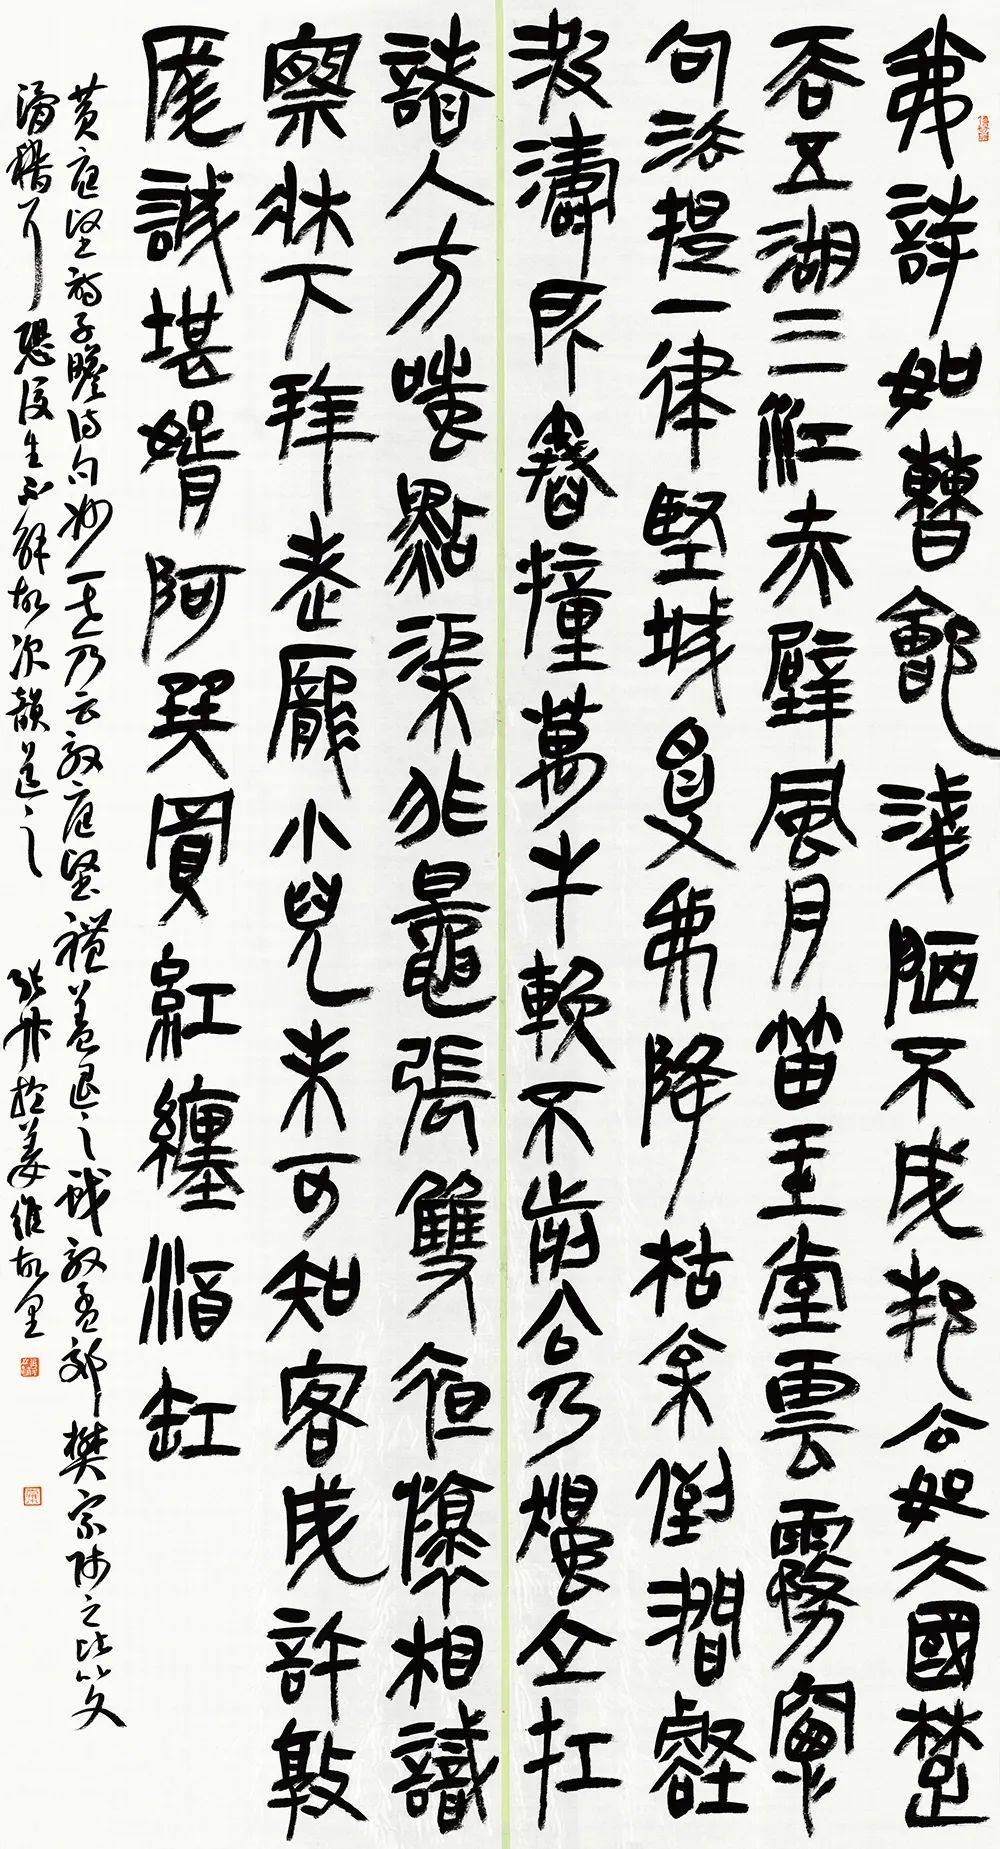 我詩如曹鄶淺陋不成邦公如大國楚
吞五湖三江赤壁風月笛玉堂雲霧窗
句法提一律堅城受我降枯松倒澗壑
波濤所舂撞萬牛輓不前公乃獨立扛
諸人方嗤點渠非鼂張雙袒懷相識
察牀下拜老龐小兒未可知客成許敦
厖誠堪婿阿巽買紅纏酒缸
黄庭堅詩子瞻詩句妙一世乃云效庭堅體蓋退之戲效孟郊樊宗師之比以文
滑稽耳恐後生不解故次韻道之 張於姜維故里